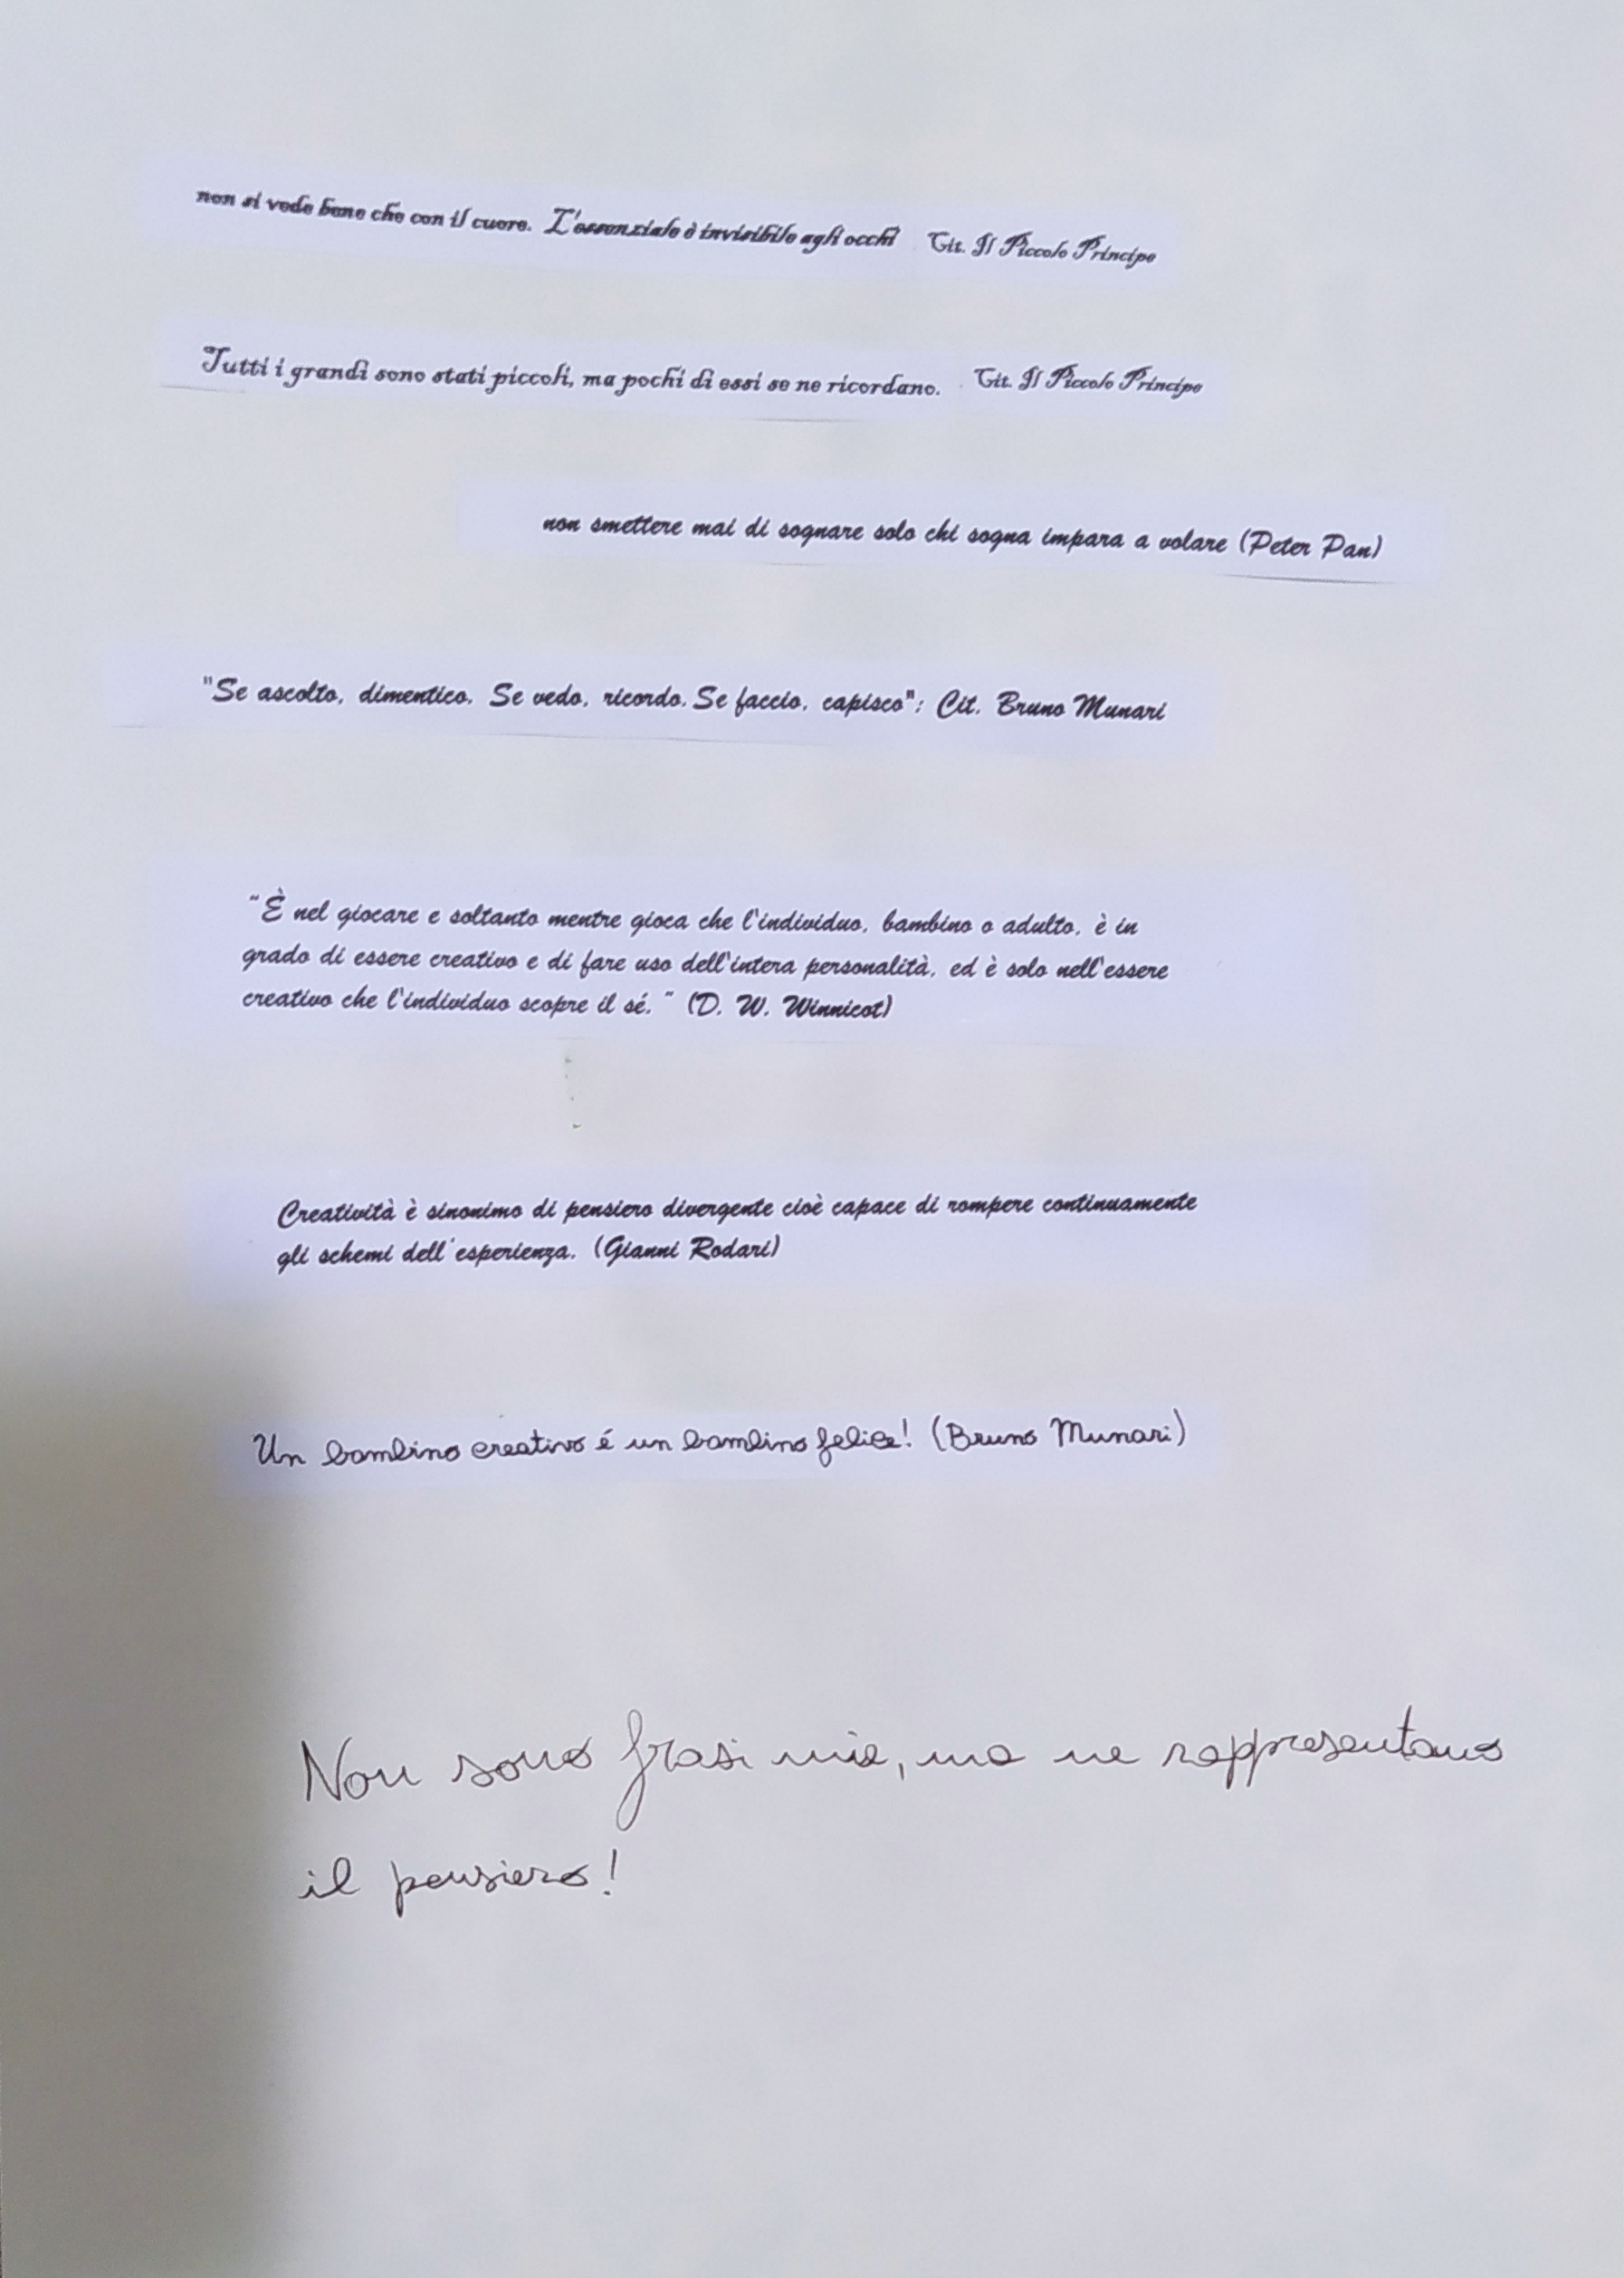 non si vede bene che con il cuore. L'essenziale è invisibile agli occhi Cit. Il Piccolo Principe
Tutti i grandi sono stati piccoli, ma pochi di essi se ne ricordano. Cit. Il Piccolo Principe
non smettere mai di sognare solo chi sogna impara a volare (Peter Pan)
"Se ascolto, dimentico. Se vedo, ricordo. Se faccio, capisco": Cit. Bruno Munari
"È nel giocare e soltanto mentre gioca che l'individuo, bambino o adulto, è in
grado di essere creativo e di fare uso dell'intera personalità, ed è solo nell'essere
creativo che l'individuo scopre il sé." (D. W. Winnicot)
Creatività è sinonimo di pensiero divergente cioè capace di rompere continuamente
gli schemi dell'esperienza. (Gianni Rodari)
Un bambino creativo é un bambino felice! (Bruno Munari)
Non sono frasi mie, ma ne rappresentano
il pensiero!